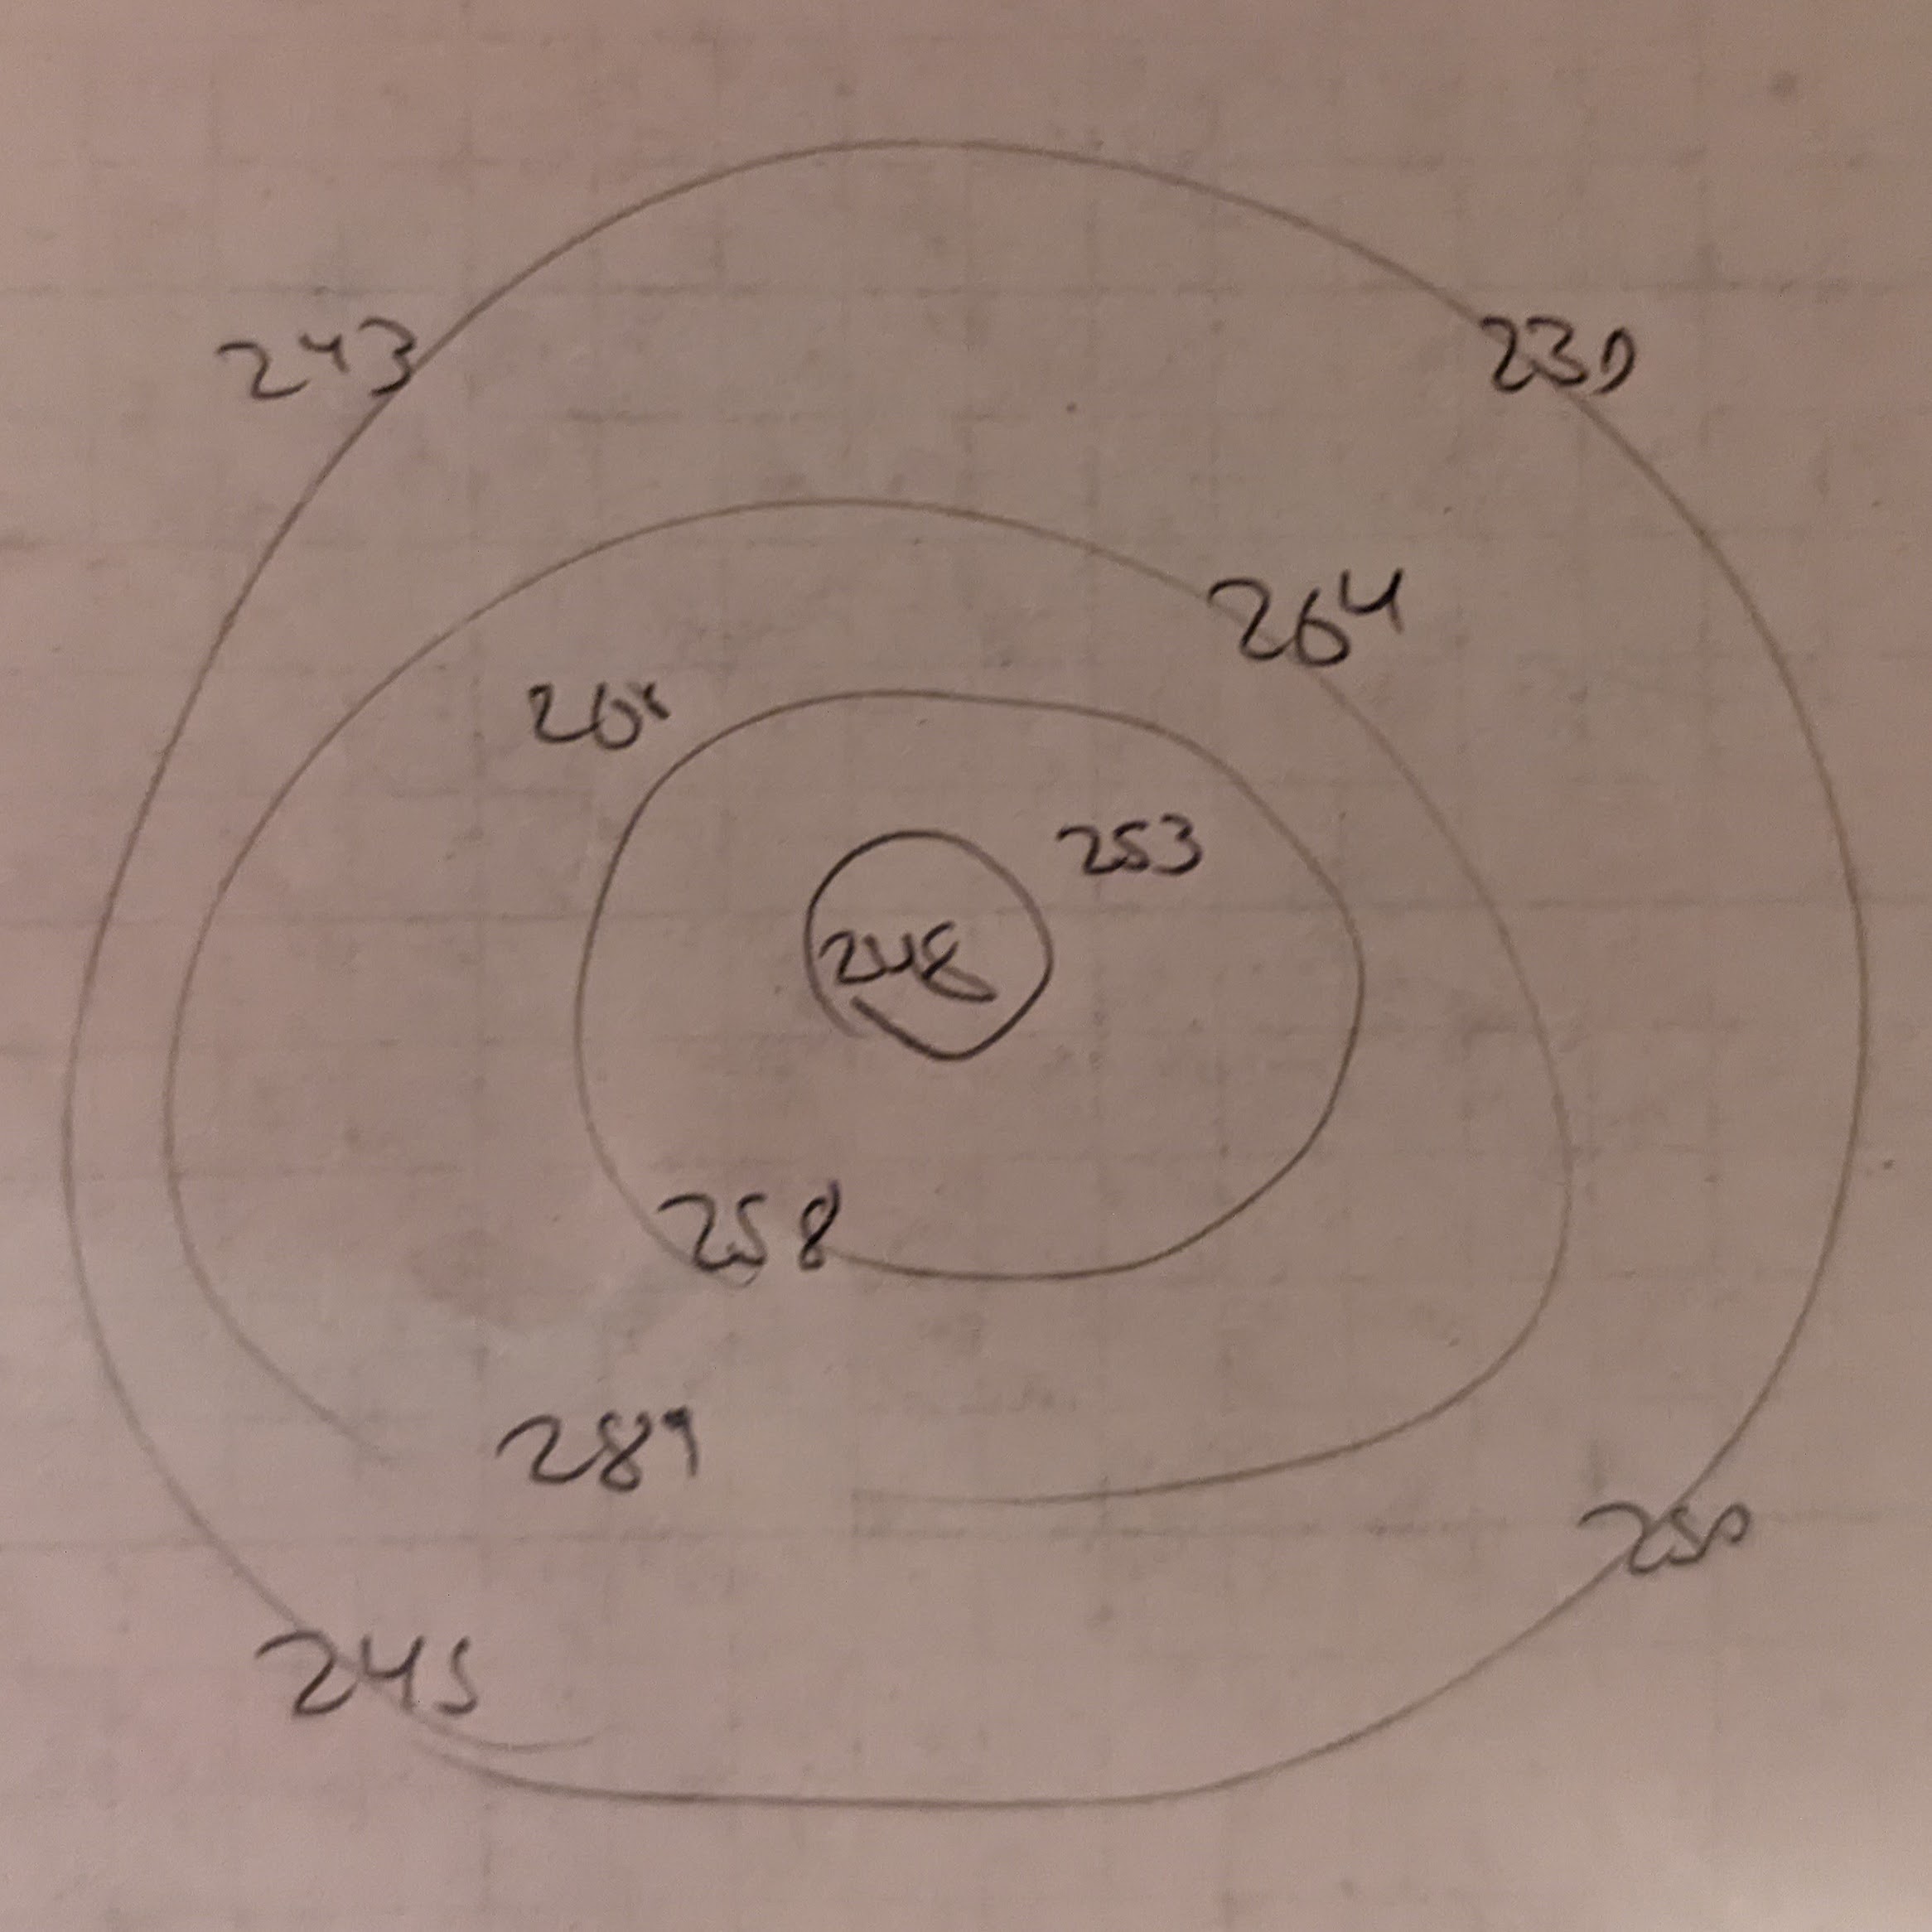 243
239
264
253
248
258
289
250
245